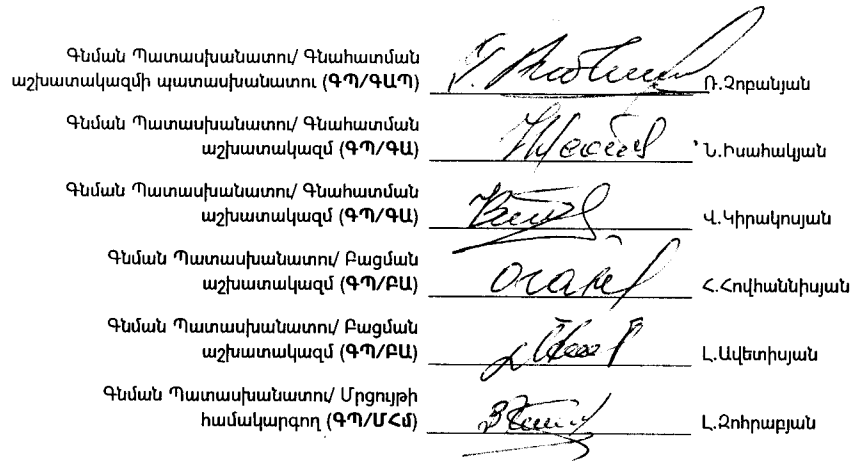 Գնման Պատասխանատու/ Գնահատման
աշխատակազմի պատասխանատու (ԳՊ/ԳԱՊ) Ռ.Չոբանյան
Գնման Պատասխանատու/ Գնահատման
աշխատակազմ (ԳՊ/ԳԱ) Ն.Իսահակյան
Գնման Պատասխանատու/ Գնահատման
աշխատակազմ (ԳՊ/ԳԱ) Վ.Կիրակոսյան
Գնման Պատասխանատու/ Բացման
աշխատակազմ (ԳՊ/ԲԱ) Հ.Հովհաննիսյան
Գնման Պատասխանատու/ Բացման
աշխատակազմ (ԳՊ/ԲԱ) Լ.Ավետիսյան
Գնման Պատասխանատու/ Մրցույթի
համակարգող (ԳՊ/ՄՀմ) Լ.Զոհրաբյան